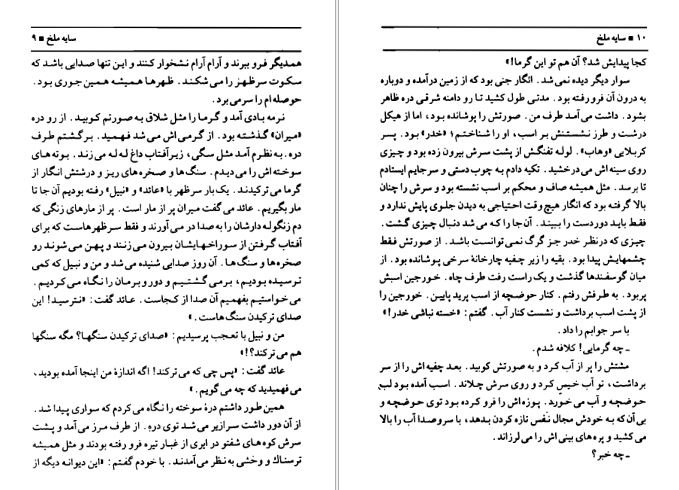 ۱۰ ■ سایه ملخ
کجا پیدایش شد؟ آن هم تو این گرما!»
سوار دیگر دیده نمی‌شد. انگار جنی بود که از زمین درآمده و دوباره
به درون آن فرو رفته بود. مدتی طول کشید تا رو دامنه شرقی دره ظاهر
بشود. داشت می‌آمد طرف من. صورتش را پوشانده بود، اما از هیکل
درشت و طرز نشستنش بر اسب، او را شناختم؛ «خدر» بود. پسر
کربلایی «وهاب». لوله تفنگش از پشت سرش بیرون زده بود و چیزی
روی سینه‌اش می‌درخشید. تکیه دادم به چوب دستی و سرجایم ایستادم
تا برسد. مثل همیشه صاف و محکم بر اسب نشسته بود و سرش را چنان
بالا گرفته بود که انگار هیچ وقت احتیاجی به دیدن جلوی پایش ندارد و
فقط باید دوردست را ببیند. آن جا را که می‌شد دنبال چیزی گشت.
چیزی که در نظر خدر جز گرگ نمی‌توانست باشد. از صورتش فقط
چشمهایش پیدا بود. بقیه را زیر چفیه چارخانهٔ سرخی پوشانده بود. از
میان گوسفندها گذشت و یک راست رفت طرف چاه. خورجین اسبش
پر بود. به طرفش رفتم. کنار حوضچه از اسب پرید پایین. خورجین را
از پشت اسب برداشت و نشست کنار آب. گفتم: «خسته نباشی خدر!»
با سر جوابم را داد.
ـ چه گرمایی! کلافه شدم.
مشتش را پر از آب کرد و به صورتش کوبید. بعد چفیه‌اش را از سر
برداشت، تو آب خیس کرد و روی سرش چلاند. اسب آمده بود لب
حوضچه و آب می‌خورد. پوزه‌اش را فرو کرده بود توی حوضچه و
بی آن که به خودش مجال نفس تازه کردن بدهد، با سروصدا آب را بالا
می‌کشید و پره‌های بینی‌اش را می‌لرزاند.
ـ چه خبر؟
سایه ملخ ■ ۹
همدیگر فرو ببرند و آرام آرام نشخوار کنند و این تنها صدایی باشد که
سکوت سر ظهر را می‌شکند. ظهرها همیشه همین جوری بود.
حوصله‌ام را سر می‌برد.
نرمه بادی آمد و گرما را مثل شلاق به صورتم کوبید. از رو دره
«میران» گذشته بود. از گرمی‌اش می‌شد فهمید. برگشتم طرف
دره. به نظرم آمد مثل سگی، زیر آفتاب داغ له له می‌زند. بوته‌های
سوخته‌اش را می‌دیدم. سنگ‌ها و صخره‌های ریز و درشتش انگار از
گرما می‌ترکیدند. یک بار سر ظهر با «عائد» و «نبیل» رفته بودیم آن جا تا
مار بگیریم. عائد می‌گفت میران پر از مار است. پر از مارهای زنگی که
دم زنگوله دارشان را به صدا در می‌آورند و فقط سر ظهرهاست که برای
آفتاب گرفتن از سوراخهایشان بیرون می‌زنند و پهن می‌شوند رو
صخره‌ها و سنگ‌ها. آن روز صدایی شنیده می‌شد و من و نبیل که کمی
ترسیده بودیم، برمی‌گشتیم و دور و برمان را نگاه می‌کردیم.
می‌خواستیم بفهمیم آن صدا از کجاست. عائد گفت: «نترسید! این
صدای ترکیدن سنگ هاست.»
من و نبیل با تعجب پرسیدیم: «صدای ترکیدن سنگها؟ مگه سنگها
هم می‌ترکند؟!»
عائد گفت: «پس چی که می‌ترکند! اگه اندازهٔ من اینجا آمده بودید،
می‌فهمیدید که چه می‌گویم.»
همین طور داشتم درهٔ سوخته را نگاه می‌کردم که سواری پیدا شد.
از آن دور داشت سرازیر می‌شد توی دره. از طرف مرز می‌آمد و پشت
سرش کوه‌های شفتو در ابری از غبار تیره فرو رفته بودند و مثل همیشه
ترسناک و وحشی به نظر می‌آمدند. با خودم گفتم: «این دیوانه دیگه از